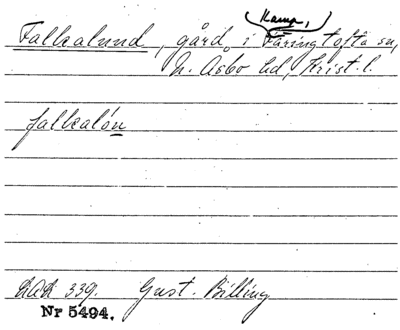 Kamp,
Falkalund, gård, i Färingtofta sn,
N. Åsbo hd, Krist. l.
falkalón
LAL 339. Gust. Billing
Nr 5494.